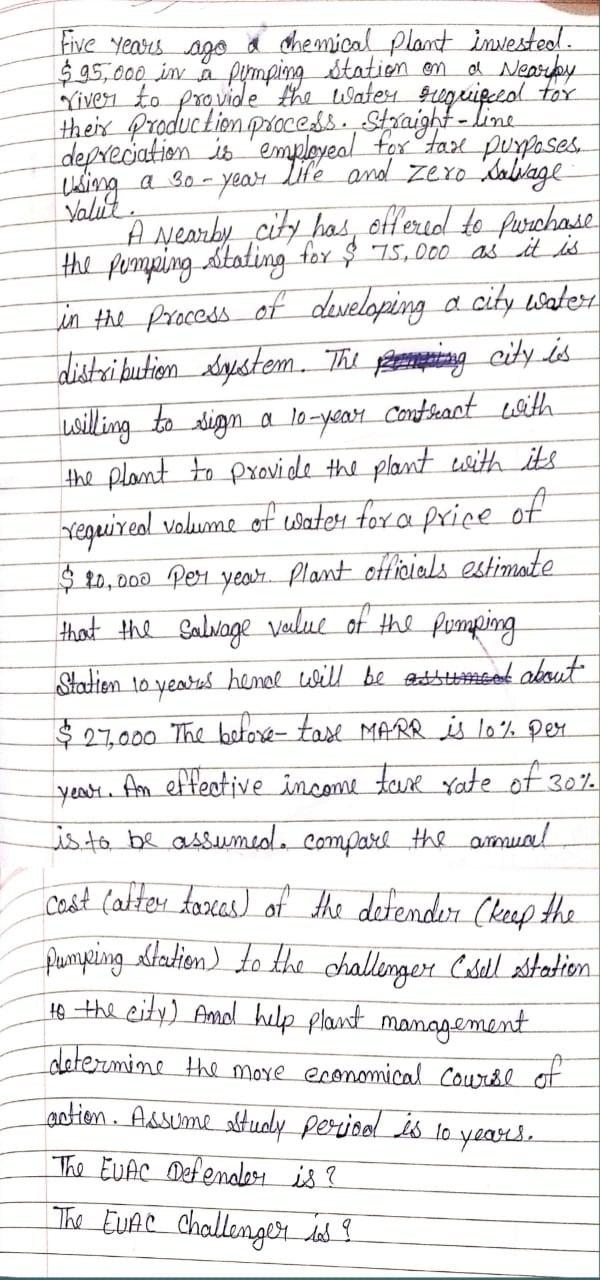 Five years ago a chemical plant invested.
$95,000 in a pumping station on a Nearby
river to provide the water required for
their Production process. Straight-line
depreciation is employed for tax purposes,
Using a 30-year life and zero Salvage
Value.
A Nearby city has offered to Purchase
the pumping Stating for $ 75,000 as it is
in the process of developing a city water
distribution System. The city is
willing to sign a 10-year contract with
the plant to provide the plant with its
required volume of water for a price of
$ 10,000 Per year. Plant officials estimate
that the Salvage value of the Pumping
Station 10 years hence will be about
$ 27,000 The before-tax MARR is 10% per
year. An effective income tax rate of 30%
is to be assumed. compare the annual
cost (after taxes) of the defender (keep the
Pumping Station) to the challenger (sell station
to the city) And help plant management
determine the more economical course of
action. Assume study period is 10 years.
The EUAC Defender is?
The EUAC Challenger is?